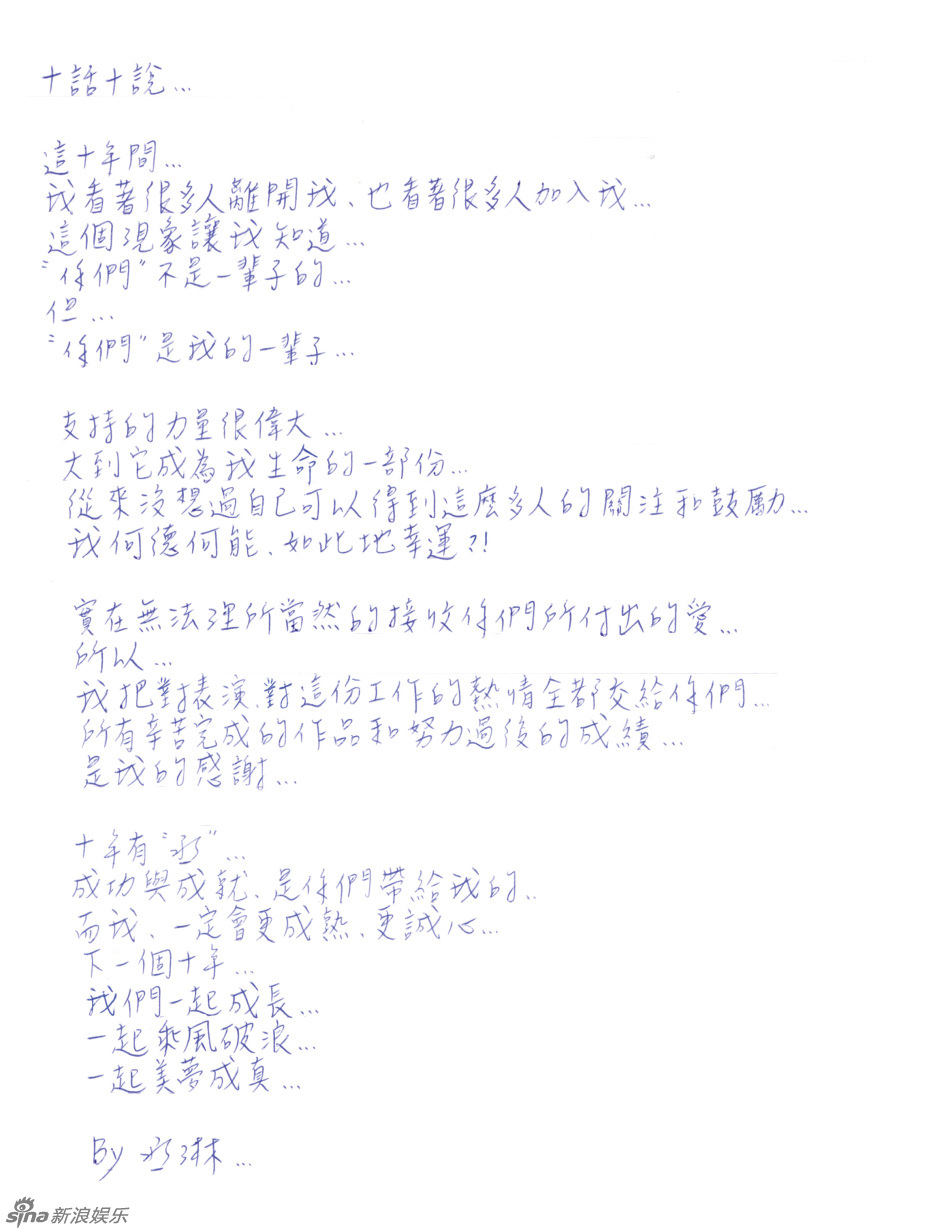 十話十說...
這十年間...
我看著很多人離開我、也看著很多人加入我...
這個現象讓我知道...
"你們"不是一輩子的...
但...
"你們"是我的一輩子...
支持的力量很偉大...
大到它成為我生命的一部份...
從來沒想過自己可以得到這麼多人的關注和鼓勵...
我何德何能、如此地幸運?!
實在無法理所當然的接收你們所付出的愛...
所以...
我把對表演、對這份工作的熱情全都交給你們...
所有辛苦完成的作品和努力過後的成績...
是我的感謝...
十年有"丞"...
成功與成就、是你們帶給我的..
而我、一定會更成熟、更誠心...
下一個十年...
我們一起成長...
一起乘風破浪...
一起美夢成真...
By 丞琳...
sina新浪娱乐